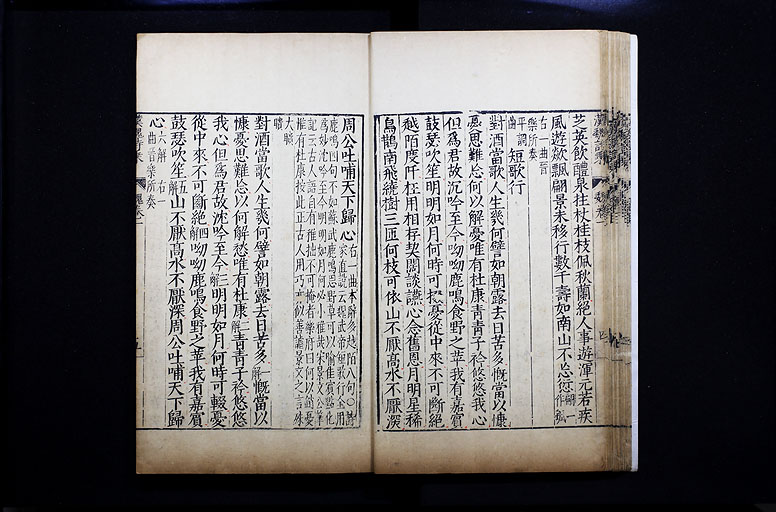 芝英飲醴泉拄杖桂枝佩秋蘭絕人事遊渾元若疾
風遊歘飄翩景未移行數千壽如南山不忘愆
右一曲晉
樂所奏
平調
曲 短歌行
對酒當歌人生幾何譬如朝露去日苦多慨當以慷
憂思難忘何以解憂唯有杜康青青子衿悠悠我心
但為君故沉吟至今呦呦鹿鳴食野之苹我有嘉賓
鼓瑟吹笙明明如月何時可掇憂從中來不可斷絕
越陌度阡枉用相存契闊談讌心念舊恩月明星稀
烏鵲南飛繞樹三匝何枝可依山不厭高水不厭深
周公吐哺天下歸心
右一曲本辭多越陌八句
對酒當歌人生幾何譬如朝露去日苦多一解慨當以
慷憂思難忘以何解愁唯有杜康二解青青子衿悠悠
我心但為君故沈吟至今三解明明如月何時可輟憂
從中來不可斷絕四解呦呦鹿鳴食野之苹我有嘉賓
鼓瑟吹笙五解山不厭高水不厭深周公吐哺天下歸
心六解 右一
曲晉樂所奏